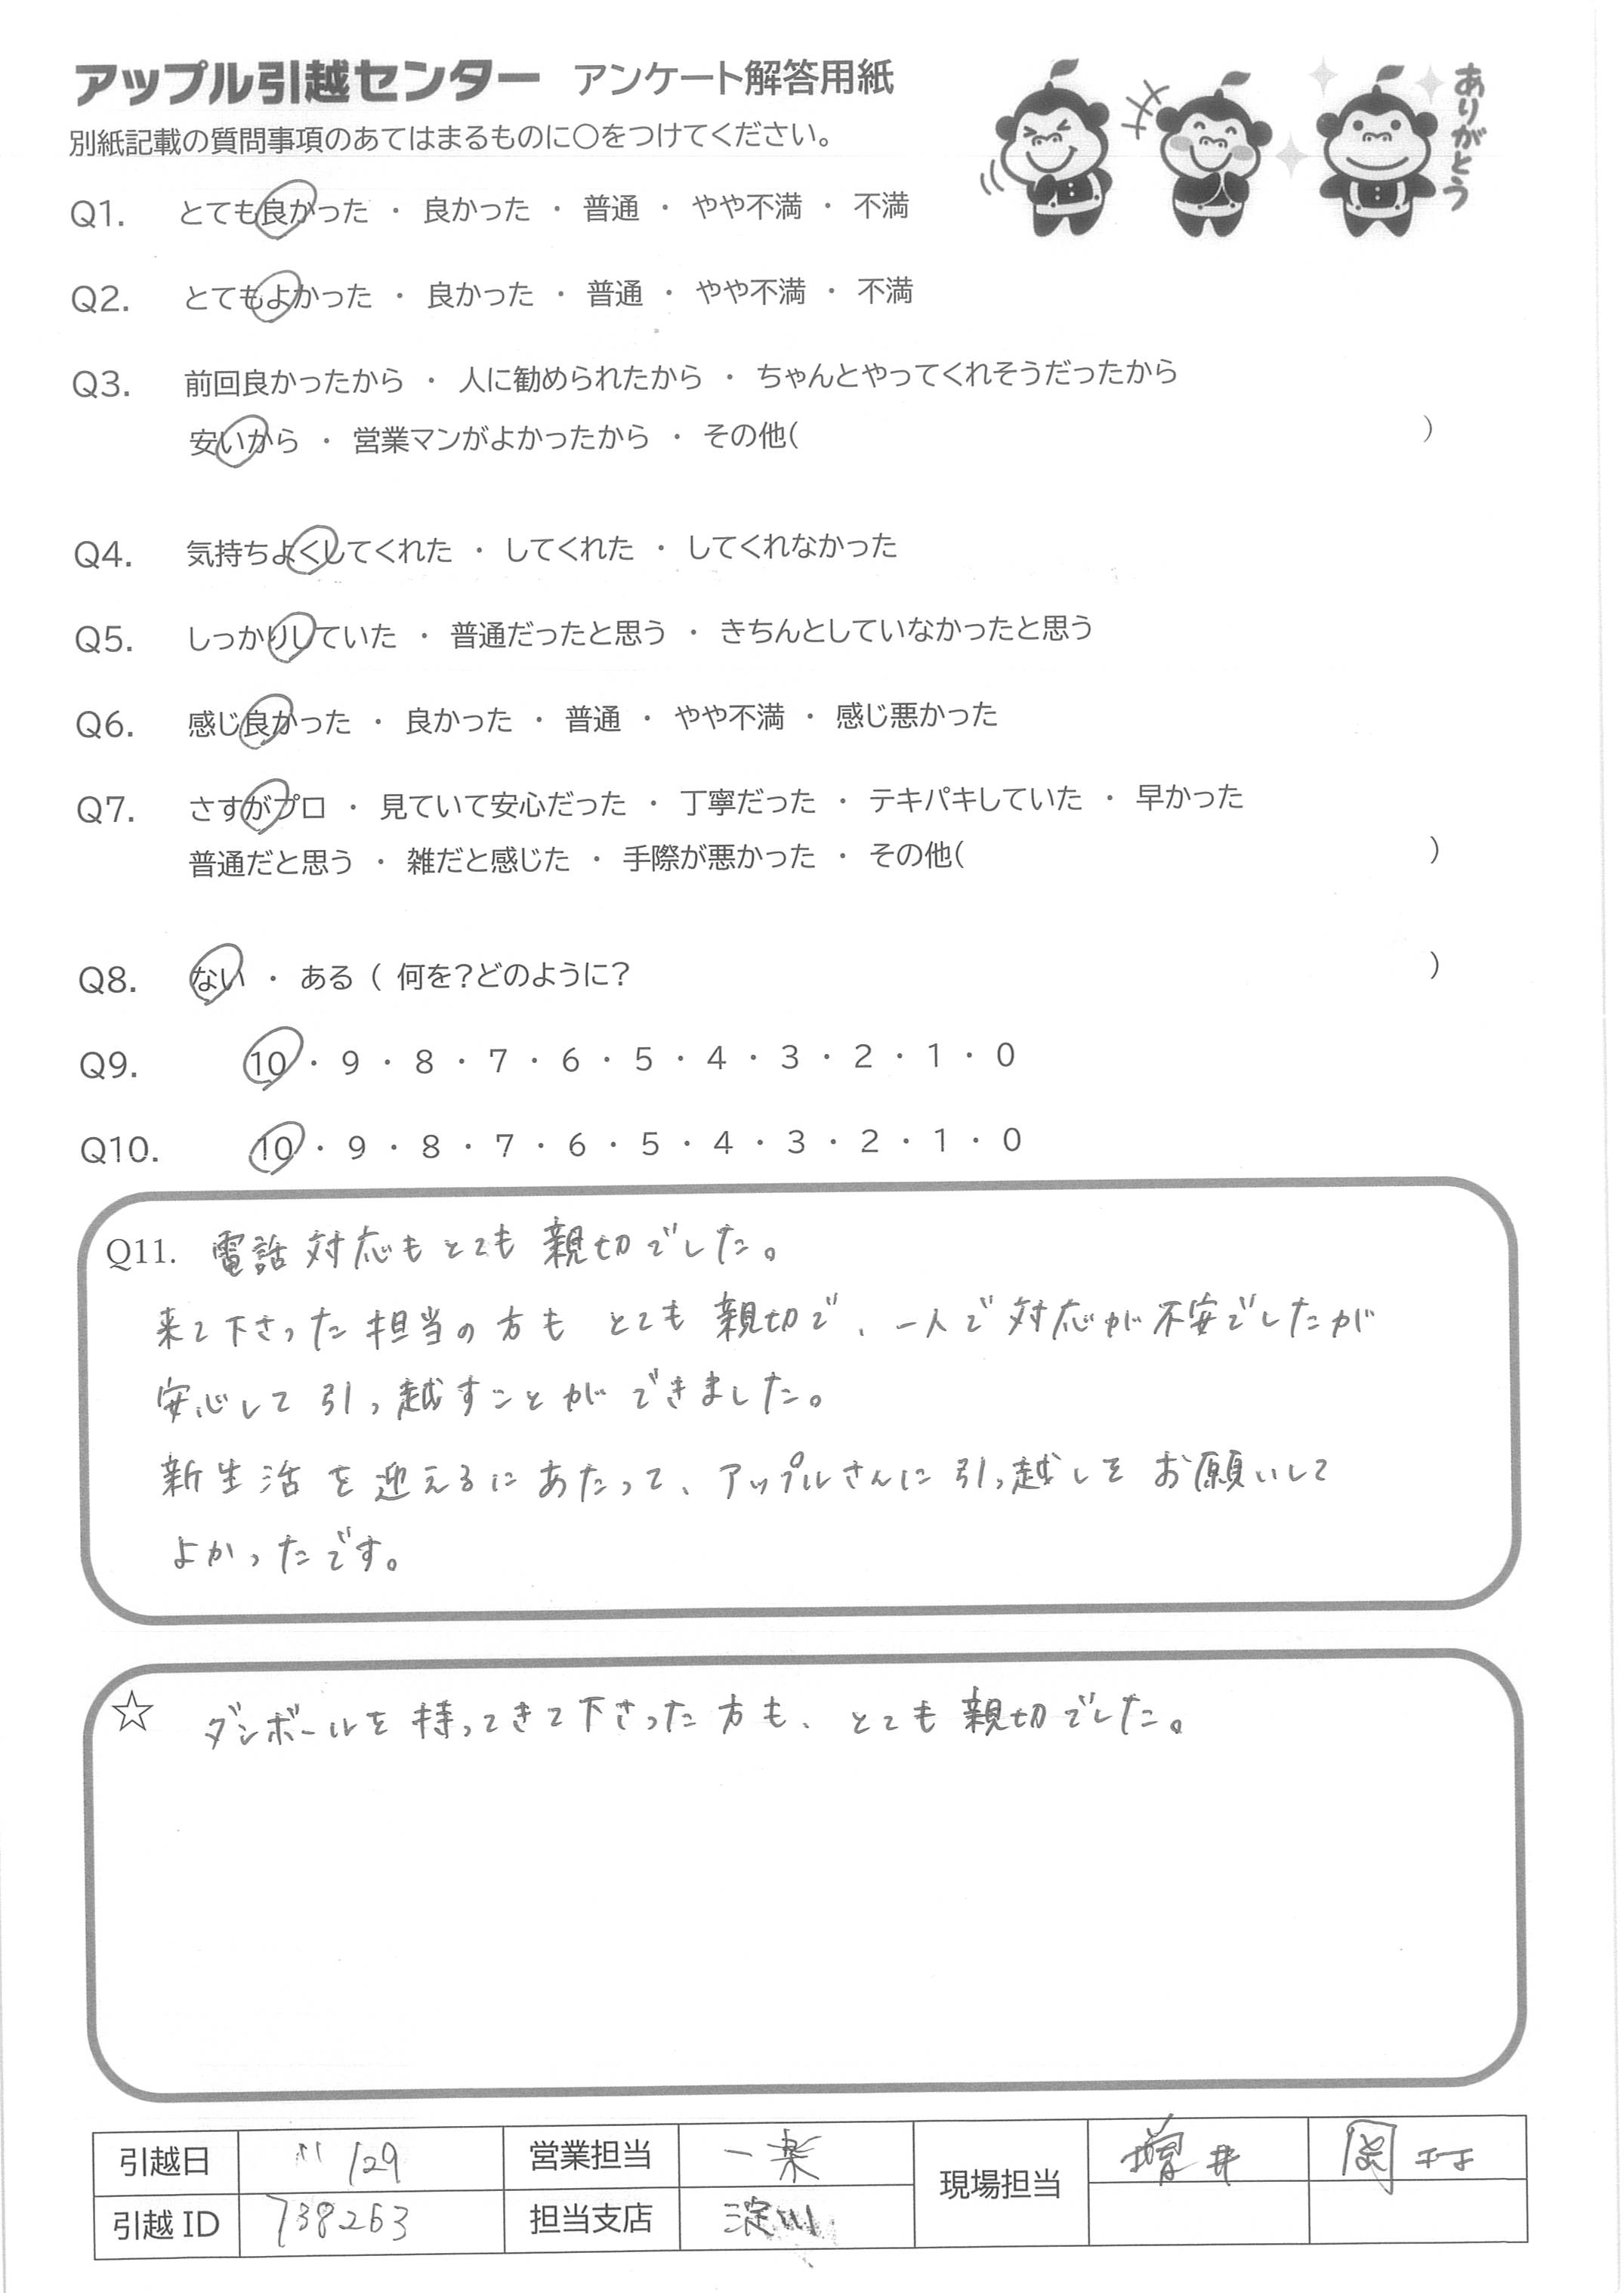 アップル引越センター アンケート解答用紙
ありがとう
別紙記載の質問事項のあてはまるものに○をつけてください。
Q1. とても良かった ・ 良かった ・ 普通 ・ やや不満 ・ 不満
Q2. とてもよかった ・ 良かった ・ 普通 ・ やや不満 ・ 不満
Q3. 前回良かったから ・ 人に勧められたから ・ ちゃんとやってくれそうだったから
安いから ・ 営業マンがよかったから ・ その他( )
Q4. 気持ちよくしてくれた ・ してくれた ・ してくれなかった
Q5. しっかりしていた ・ 普通だったと思う ・ きちんとしていなかったと思う
Q6. 感じ良かった ・ 良かった ・ 普通 ・ やや不満 ・ 感じ悪かった
Q7. さすがプロ ・ 見ていて安心だった ・ 丁寧だった ・ テキパキしていた ・ 早かった
普通だと思う ・ 雑だと感じた ・ 手際が悪かった ・ その他( )
Q8. ない ・ ある ( 何を?どのように? )
Q9. 10 ・ 9 ・ 8 ・ 7 ・ 6 ・ 5 ・ 4 ・ 3 ・ 2 ・ 1 ・ 0
Q10. 10 ・ 9 ・ 8 ・ 7 ・ 6 ・ 5 ・ 4 ・ 3 ・ 2 ・ 1 ・ 0
Q11. 電話対応もとても親切でした。
来て下さった担当の方も とても親切で、一人で対応が不安でしたが
安心して引っ越すことができました。
新生活を迎えるにあたって、アップルさんに引っ越しをお願いして
よかったです。
☆ ダンボールを持ってきて下さった方も、とても親切でした。
引越日 /29 営業担当 一楽 現場担当 増井
引越ID 738263 担当支店 淀川